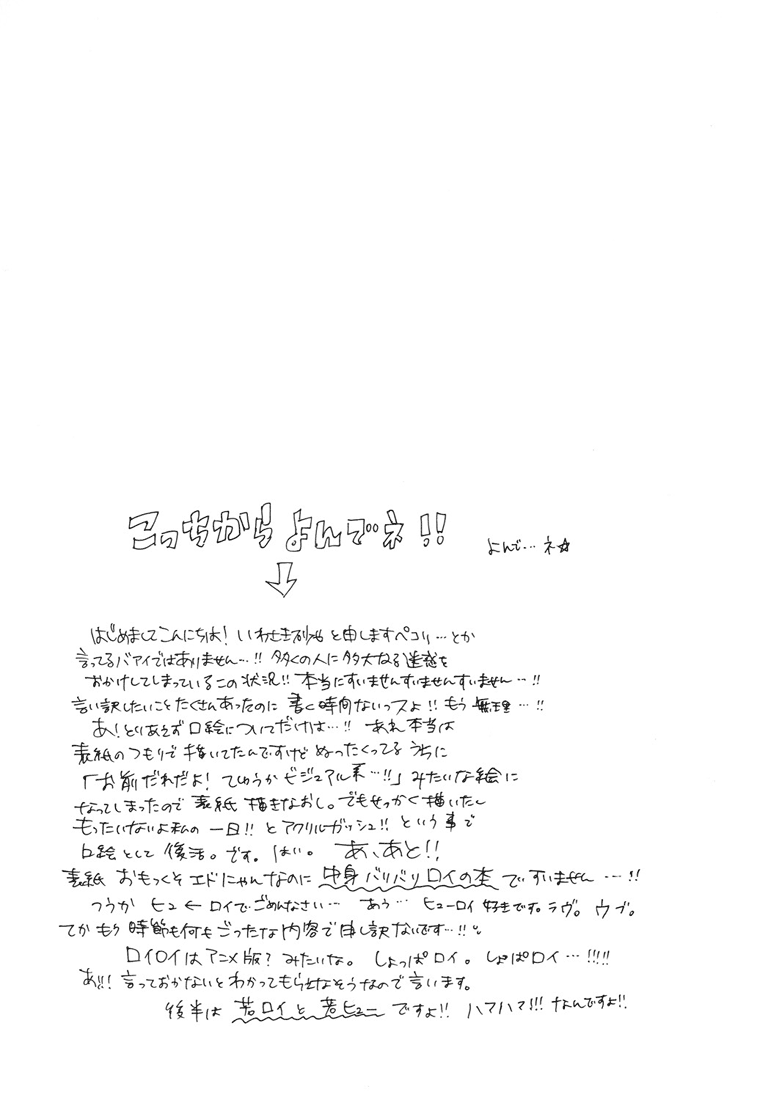 こっちからよんでネ!! よんで…ネ☆
↓
はじめましてこんにちは! いわさき と申しますペコリ…とか
言ってるバアイではありません…!! 多くの人に多大なる迷惑を
おかけしてしまっているこの状況!! 本当にすいませんすいませんすいません…!!
言い訳したいことたくさんあったのに 書く時間ないっスよ!! もう 無理…!!
あ! とりあえず 口絵についてだけは…!! あれ本当は
表紙のつもりで 描いてたんですけど ぬったくってる うちに
「お前だれだよ! てゆうか ビジュアル系…!!」みたいな絵に
なってしまったので 表紙 描きなおし。でもせっかく描いたし
もったいないよ私の 一日!! とアクリルガッシュ!! という事で
口絵として 復活。です。はい。 あ、あと!!
表紙 おもっくそ エドにゃんなのに 中身バリバリロイの本 ですいません…!!
つうか ヒュ ← ロイで ごめんなさい… あぅ… ヒューロイ 好きです。ラヴ。ウブ。
てか もう 時節も何も ごったな内容で 申し訳ないです…!!
ロイロイは アニメ版? みたいな。 しょっぱロイ。しょぱロイ…!!!!
あ!! 言っておかないと わかってもらえなそうなので 言います。
後半は 若ロイと 若ヒュー ですよ!! ハァハァ!!! なんですよ!!